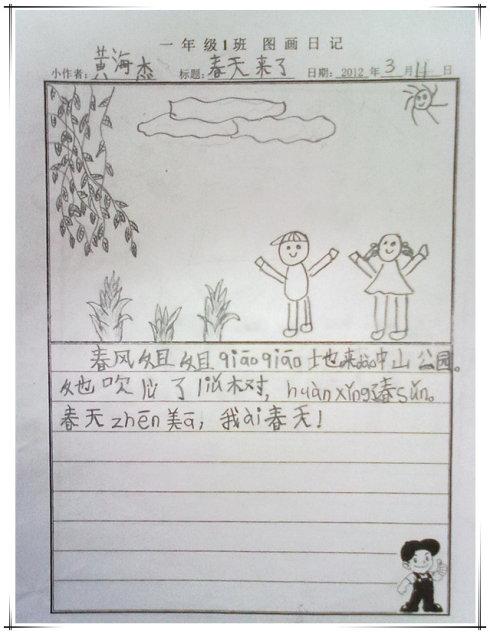 一年级1班 图画日记
小作者：黄海杰 标题：春天来了 日期：2012年3月11日
春风姐姐qiāoqiāo地来dào中山公园。
她吹lǜ了liǔ树，huànxǐng了春sǔn。
春天zhēn美ā，我ài春天！